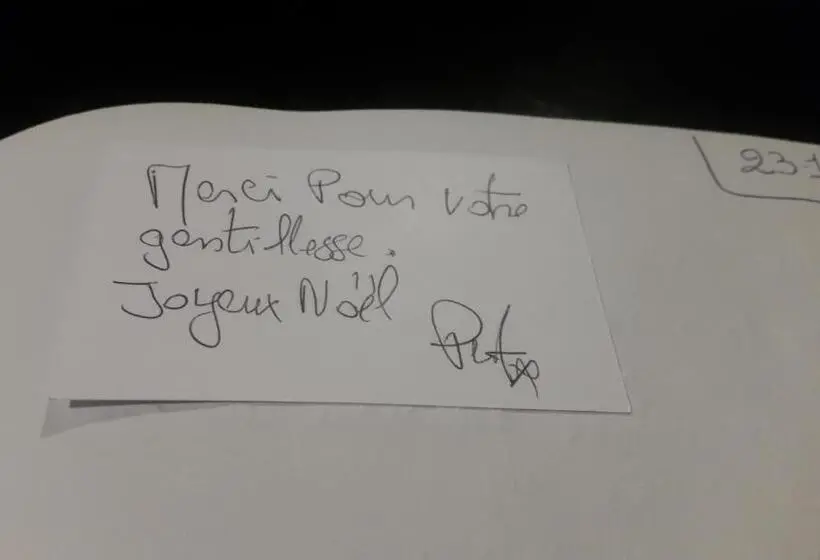 Merci Pour votre
gentillesse.
Joyeux Noël
23